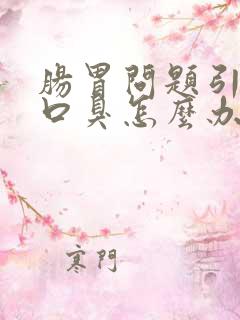 腸胃問題引
口臭怎麼办
寒門